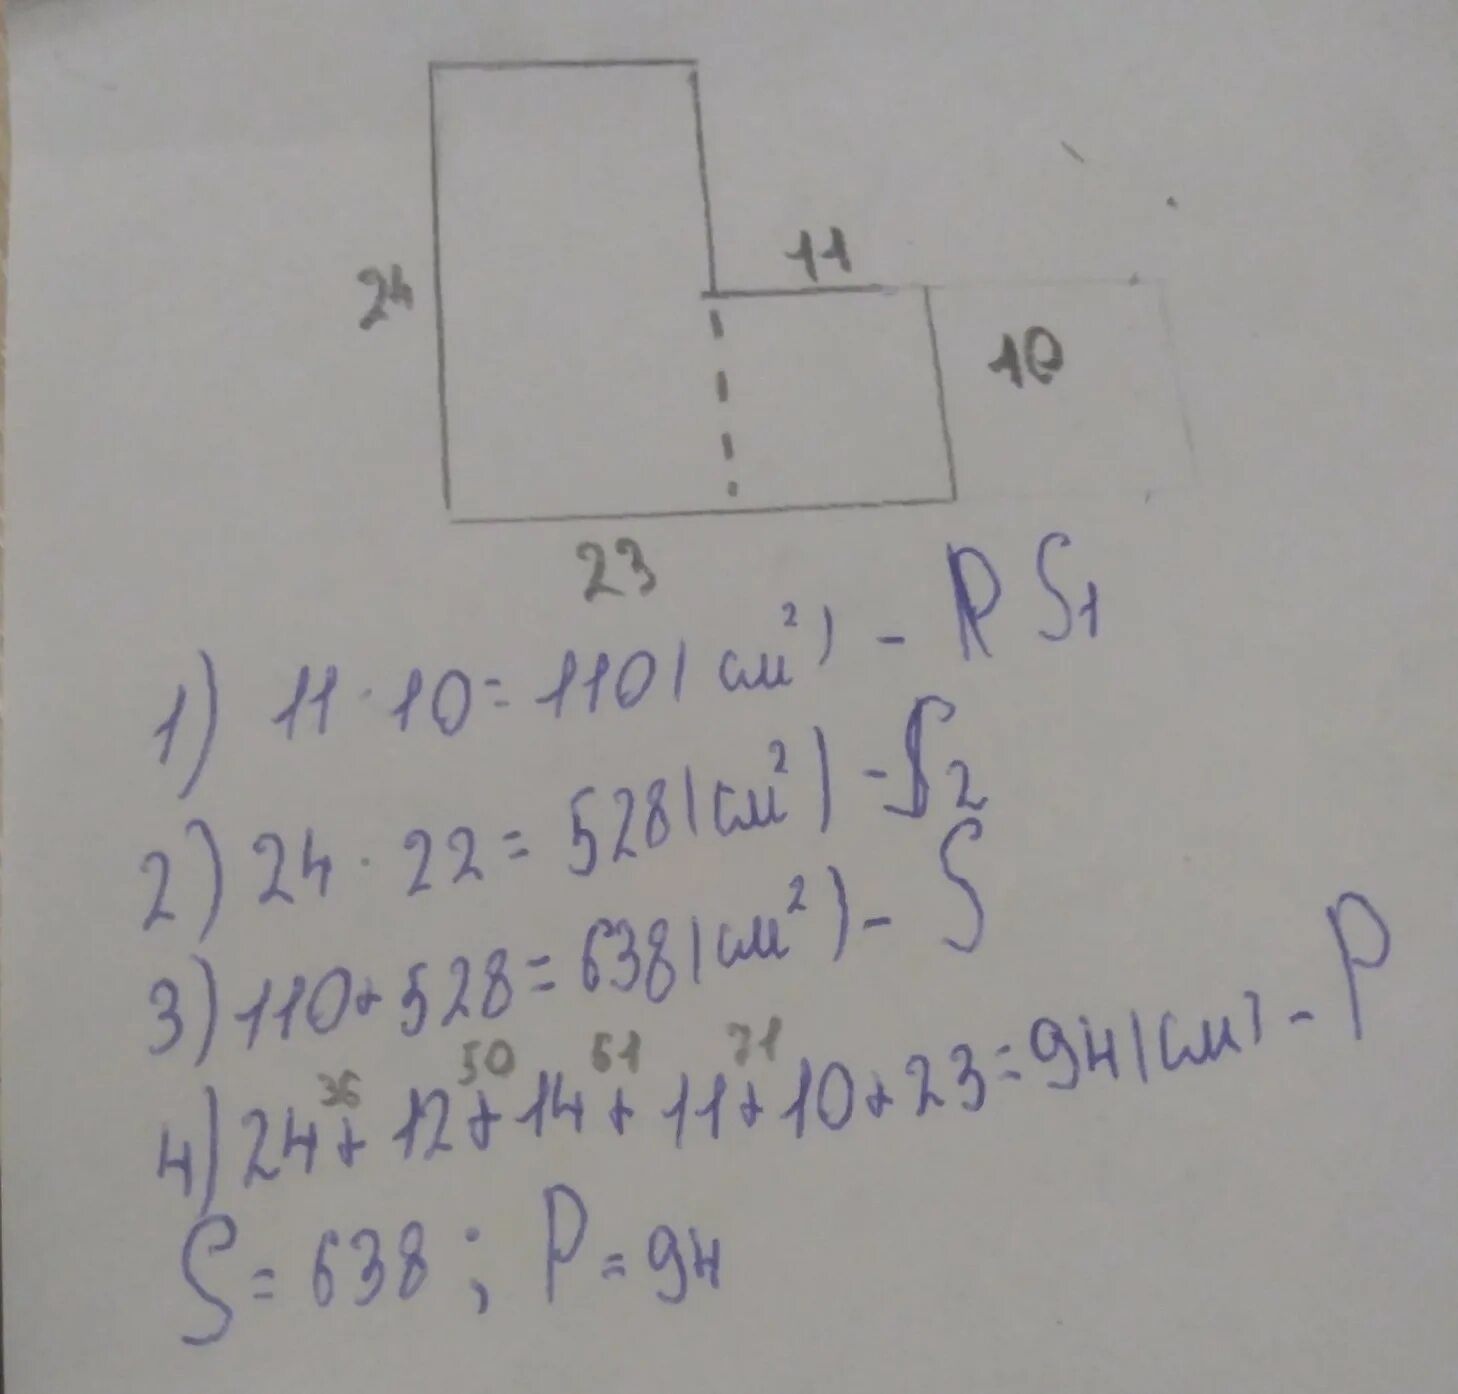 11
24
10
23
1) 11 · 10 = 110 (см²) - P S₁
2) 24 · 22 = 528 (см²) - S₂
3) 110 + 528 = 638 (см²) - S
36 50 61 71
4) 24 + 12 + 14 + 11 + 10 + 23 = 94 (см) - P
S = 638 ; P = 94